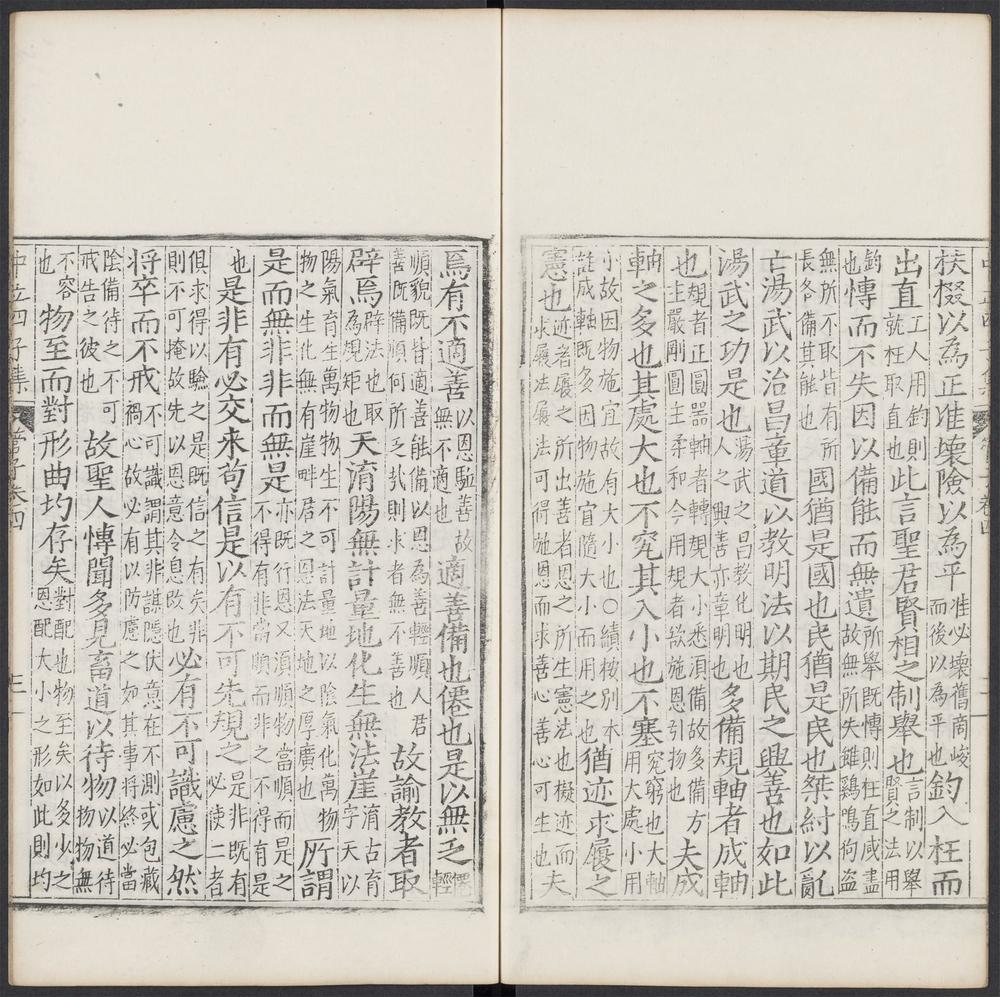 扶撥以為正准壞險以為平准必壞舊商峻而後以為平也鈎入枉而
出直工人用鈎則就枉取直也此言聖君賢相之制舉也言制以舉賢之法用
鈎也慱而不失因以備能而無遺所舉既慱則枉直咸盡故無所失雖鷄鳴狗盜
無所不取皆有所長各備其能也國猶是國也民猶是民也桀紂以亂
亡湯武以治昌童道以教明法以期民之興善也如此
湯武之功是也湯武之昌教化明也人之興善亦章明也多備規軸者成軸
也規者正圓器軸者轉規大小悉湏備故多備方也主嚴剛圓主柔和今用規者欲施恩引物也夫成
軸之多也其處大也不究其入小也不塞究窮也大軸用大處小用
小故因物施宜故有大小也○績桉別本成軸既多因物施宜隨大小而用之也猶迹求履之
憲也迹者履之所出善者恩之所生憲法也擬迹而求履法履法可得施恩而求善心善心可生也夫
焉有不適善以恩驅善故無不適也適善備也僊也是以無乏僊輕
順貌既皆適善能備以恩為善輕順人君善既備順何所乏乎則求者無不善也故諭教者取
辟焉辟法也取為規矩也天淯陽無計量地化生無法崖淯古育字天以
陽氣育生萬物物生不可計量地以陰氣化萬物物之生化無有崖畔君之恩法天地之厚廣也所謂
是而無非非而無是亦既行恩又湏順物當順而是之不得有非當順而非之不得有是
也是非有必交來苟信是以有不可先規之是非既有必使二者
俱求得以驗之是既信之有矣非則不可掩故先以恩意令息改也必有不可識慮之然
將卒而不戒不可識謂其非謀隱伏意在不測或包藏禍心故必有以防慮之如其事將終必當
陰備待之不可戒告之彼也故聖人慱聞多見畜道以待物物以道待物物無
不容也物至而對形曲均存矣對配也物至矣以多少之恩配大小之形如此則均
中立四子集 管子卷四 三